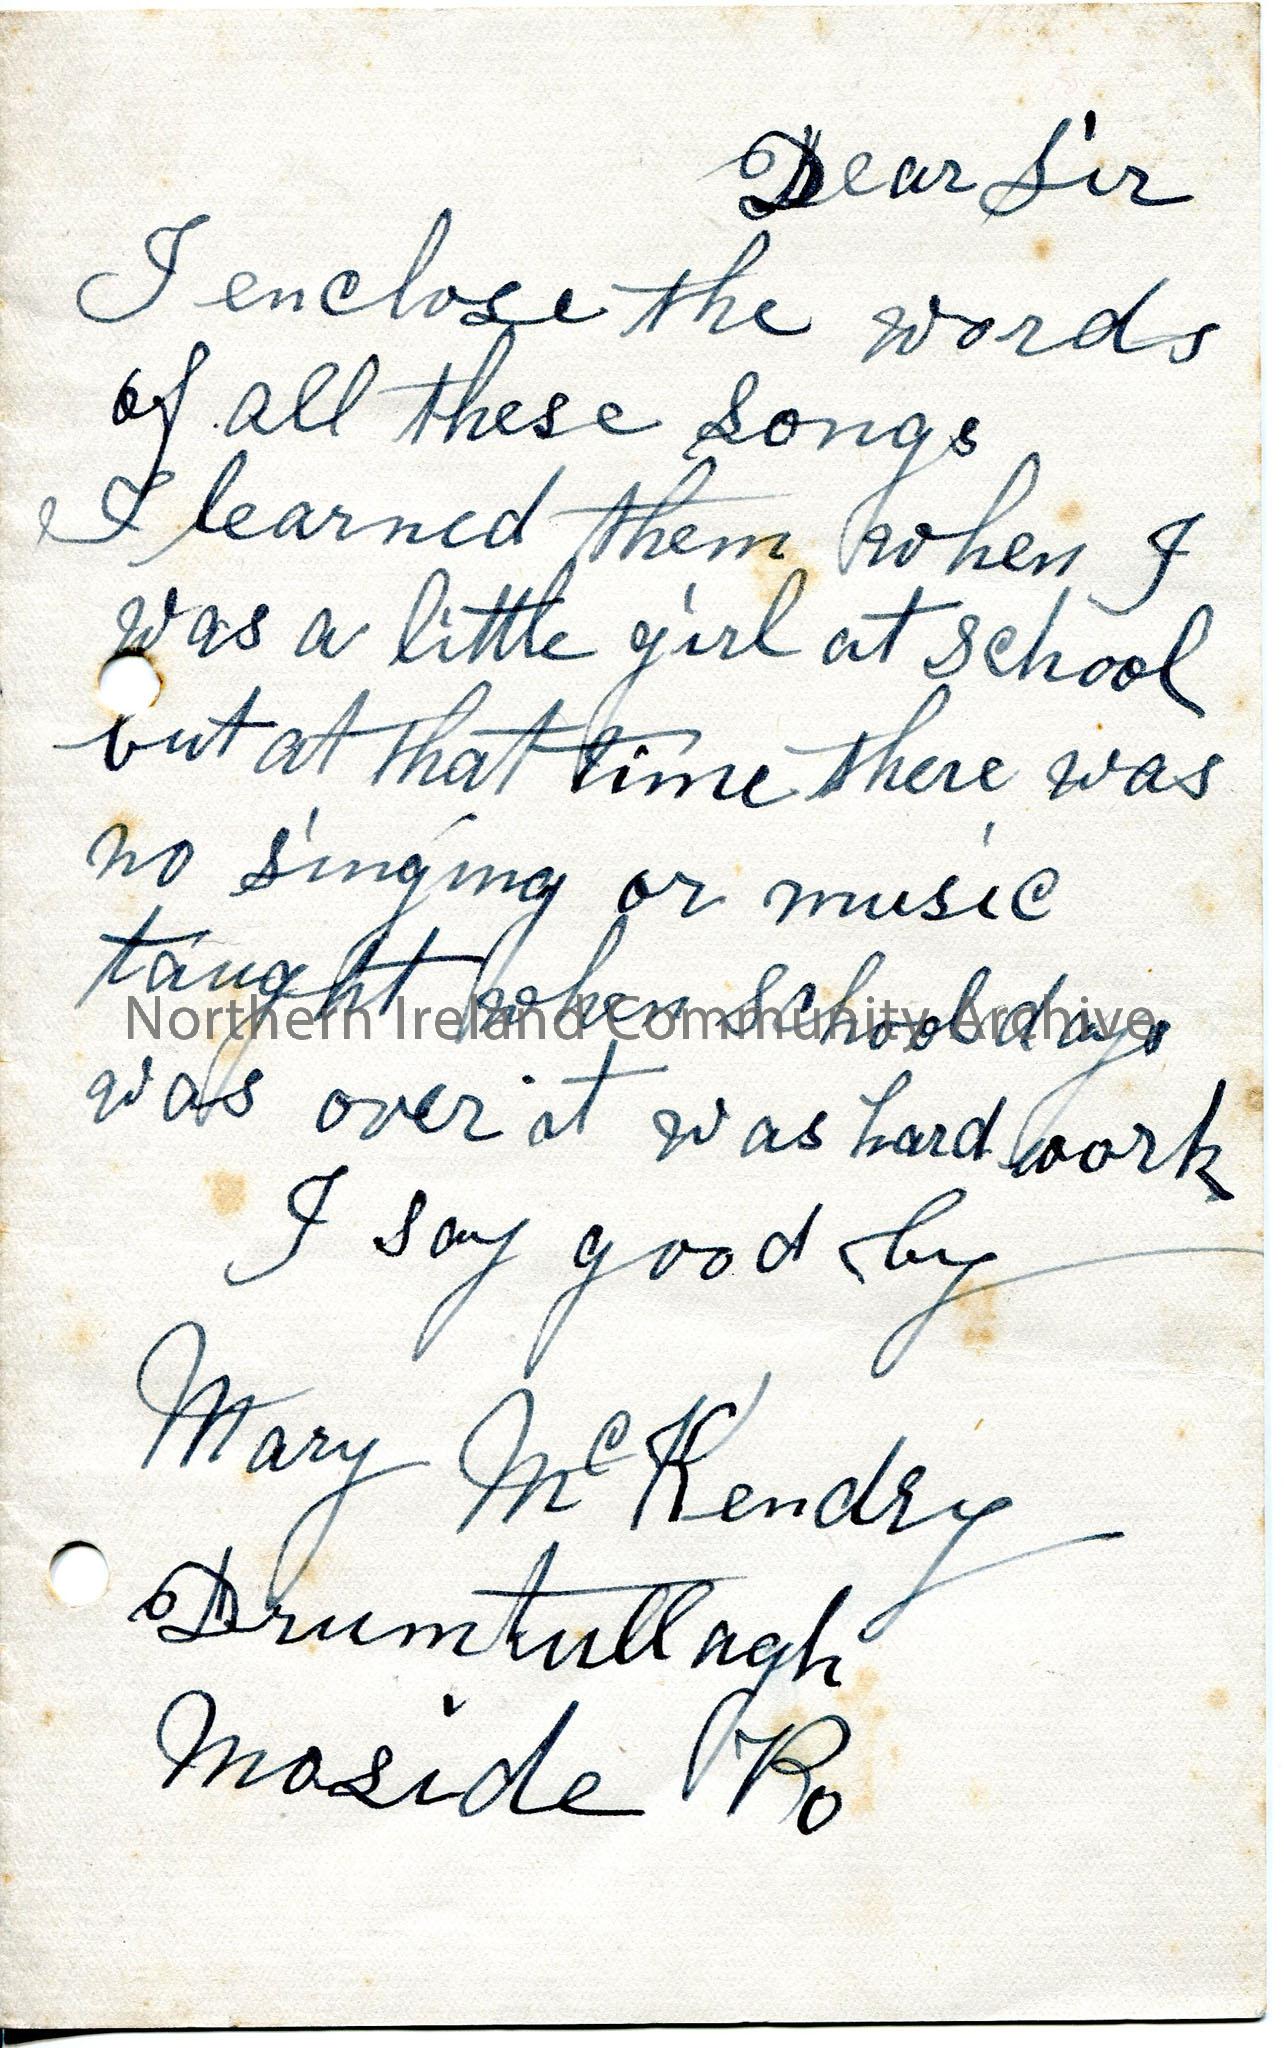 Dear Sir
I enclose the words
of all these songs
I learned them when I
was a little girl at school
but at that time there was
no singing or music
taught when school days
Northern Ireland Community Archive
was over it was hard work
I say good by
Mary McKendry
Drumtullagh
Moside Ro